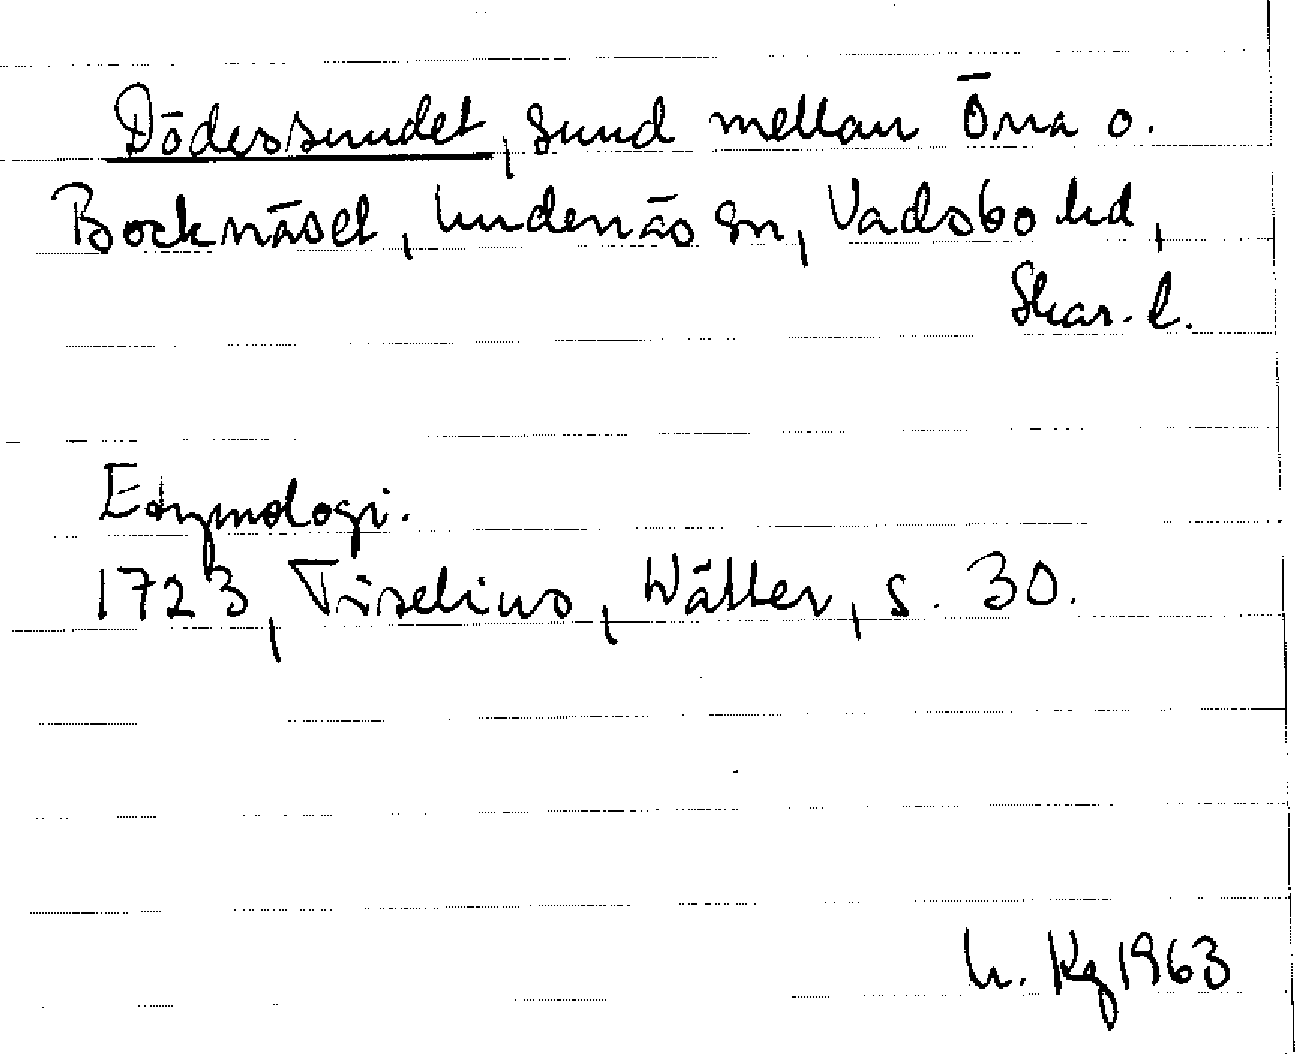 Dödessundet, sund mellan Örna o.
Bocknäset, Undenäs sn, Vadsbo hd,
Skar. l.
Etymologi.
1723, Tiselius, Wätter, s. 30.
h. Kg 1963